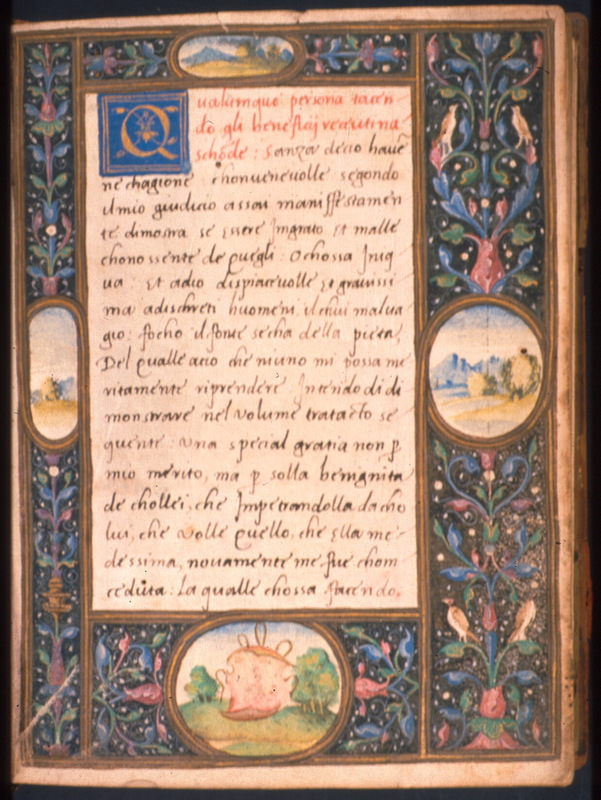 Qualunque persona tacen
do gli beneficij receuuti na
schōde: Sanza decio hauē
ne chagione chonueneuolle segondo
il mio giudicio assai maniffestamen
te dimostra se Essere Ingrato Et malle
chonossente de Quegli. O chossa Iniq
ua. Et adio dispiaceuolle Et grauissi
ma adischreti huomeni il chui malua
gio focho il fonte secha della pieta,
Del Qualle acio che niuno mi possa me
ritamente riprendere. Intendo di di
monstrare nel Volume tratacto se
quente. Una special gratia non p
mio merito, ma p solla benignita
de chollei, che Impetrandolla da cho
lui, che Volle Quello, che Ella me
dessima, nouamente me fue chom
ceduta: La qualle chossa facendo.